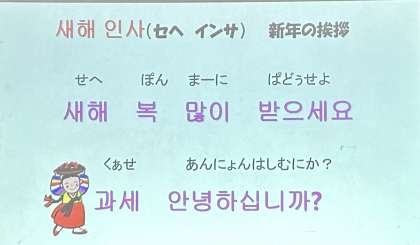 새해 인사(セヘ インサ) 新年の挨拶
せへ ぽん まーに ぱどぅせよ
새해 복 많이 받으세요
くぁせ あんにょんはしむにか?
과세 안녕하십니까?